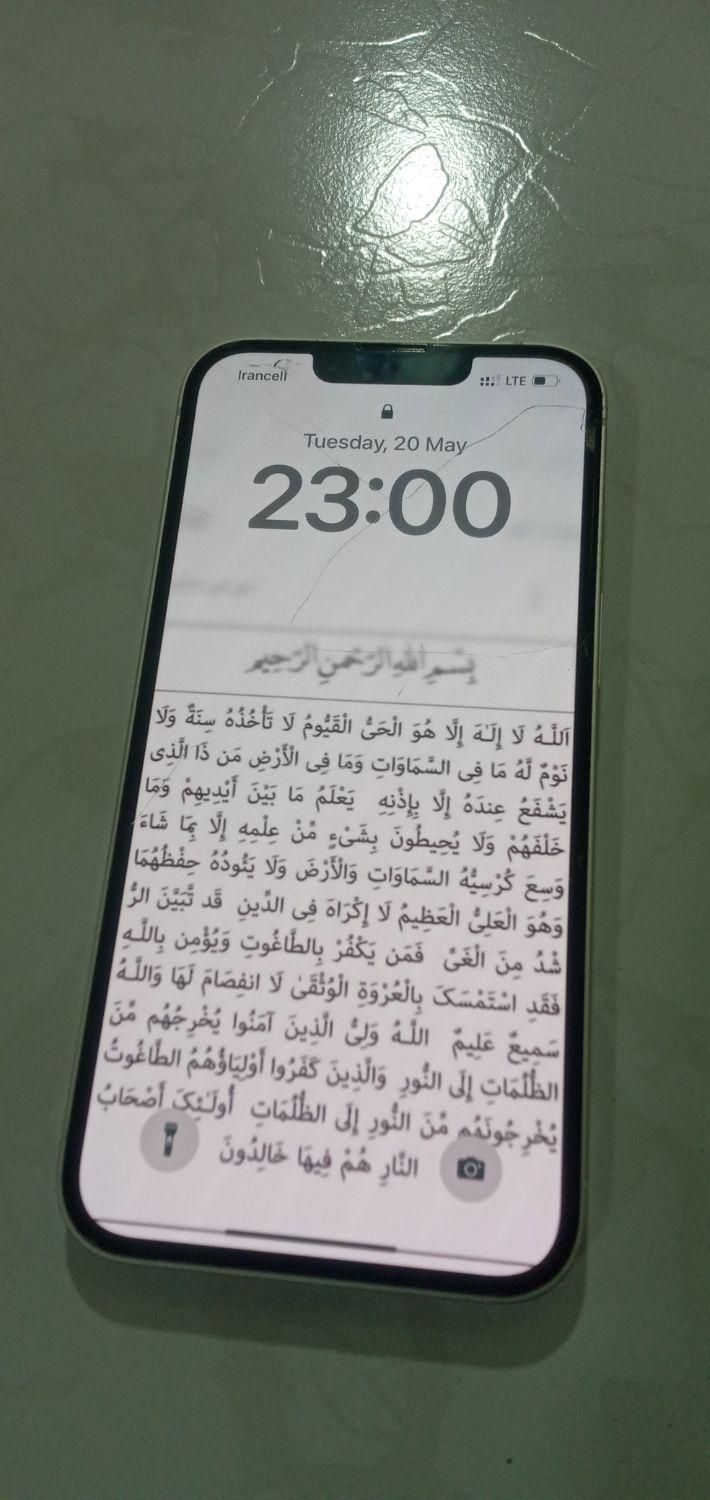 Irancell LTE
Tuesday, 20 May
23:00
بِسْمِ اللهِ الرَّحْمنِ الرَّحِیمِ
اَللَّـهُ لَا إِلَـٰهَ إِلَّا هُوَ الْحَیُّ الْقَیُّومُ لَا تَأْخُذُهُ سِنَةٌ وَلَا
نَوْمٌ لَّهُ مَا فِی السَّمَاوَاتِ وَمَا فِی الْأَرْضِ مَن ذَا الَّذِی
یَشْفَعُ عِندَهُ إِلَّا بِإِذْنِهِ یَعْلَمُ مَا بَیْنَ أَیْدِیهِمْ وَمَا
خَلْفَهُمْ وَلَا یُحِیطُونَ بِشَیْءٍ مِّنْ عِلْمِهِ إِلَّا بِمَا شَاءَ
وَسِعَ کُرْسِیُّهُ السَّمَاوَاتِ وَالْأَرْضَ وَلَا یَئُودُهُ حِفْظُهُمَا
وَهُوَ الْعَلِیُّ الْعَظِیمُ لَا إِکْرَاهَ فِی الدِّینِ قَد تَّبَیَّنَ الرُّ
شْدُ مِنَ الْغَیِّ فَمَن یَکْفُرْ بِالطَّاغُوتِ وَیُؤْمِن بِاللَّـهِ
فَقَدِ اسْتَمْسَکَ بِالْعُرْوَةِ الْوُثْقَیٰ لَا انفِصَامَ لَهَا وَاللَّـهُ
سَمِیعٌ عَلِیمٌ اللَّـهُ وَلِیُّ الَّذِینَ آمَنُوا یُخْرِجُهُم مِّنَ
الظُّلُمَاتِ إِلَی النُّورِ وَالَّذِینَ کَفَرُوا أَوْلِیَاؤُهُمُ الطَّاغُوتُ
یُخْرِجُونَهُم مِّنَ النُّورِ إِلَی الظُّلُمَاتِ أُولَـٰئِکَ أَصْحَابُ
النَّارِ هُمْ فِیهَا خَالِدُونَ